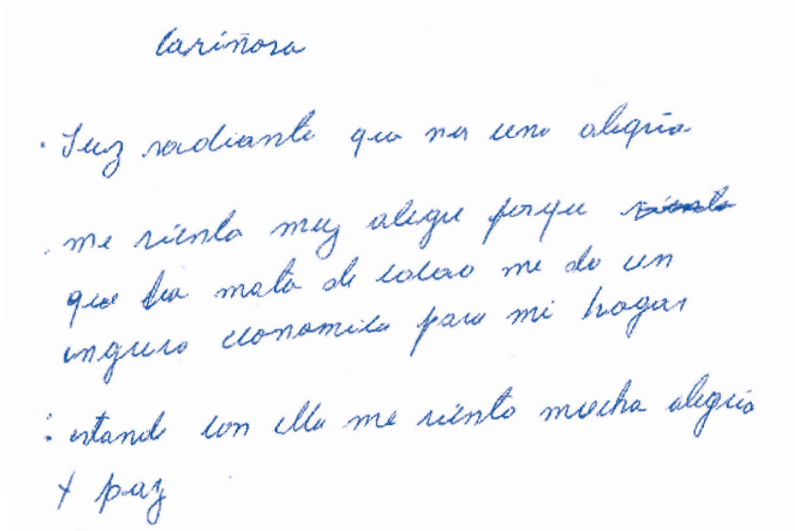 Cariñosa
. Luz radiante que nos une alegria
. me siento muy alegre porque siento
que la mata de cacao me da un
ingreso economico para mi hogar
: estando con ella me siento mucha alegria
y paz